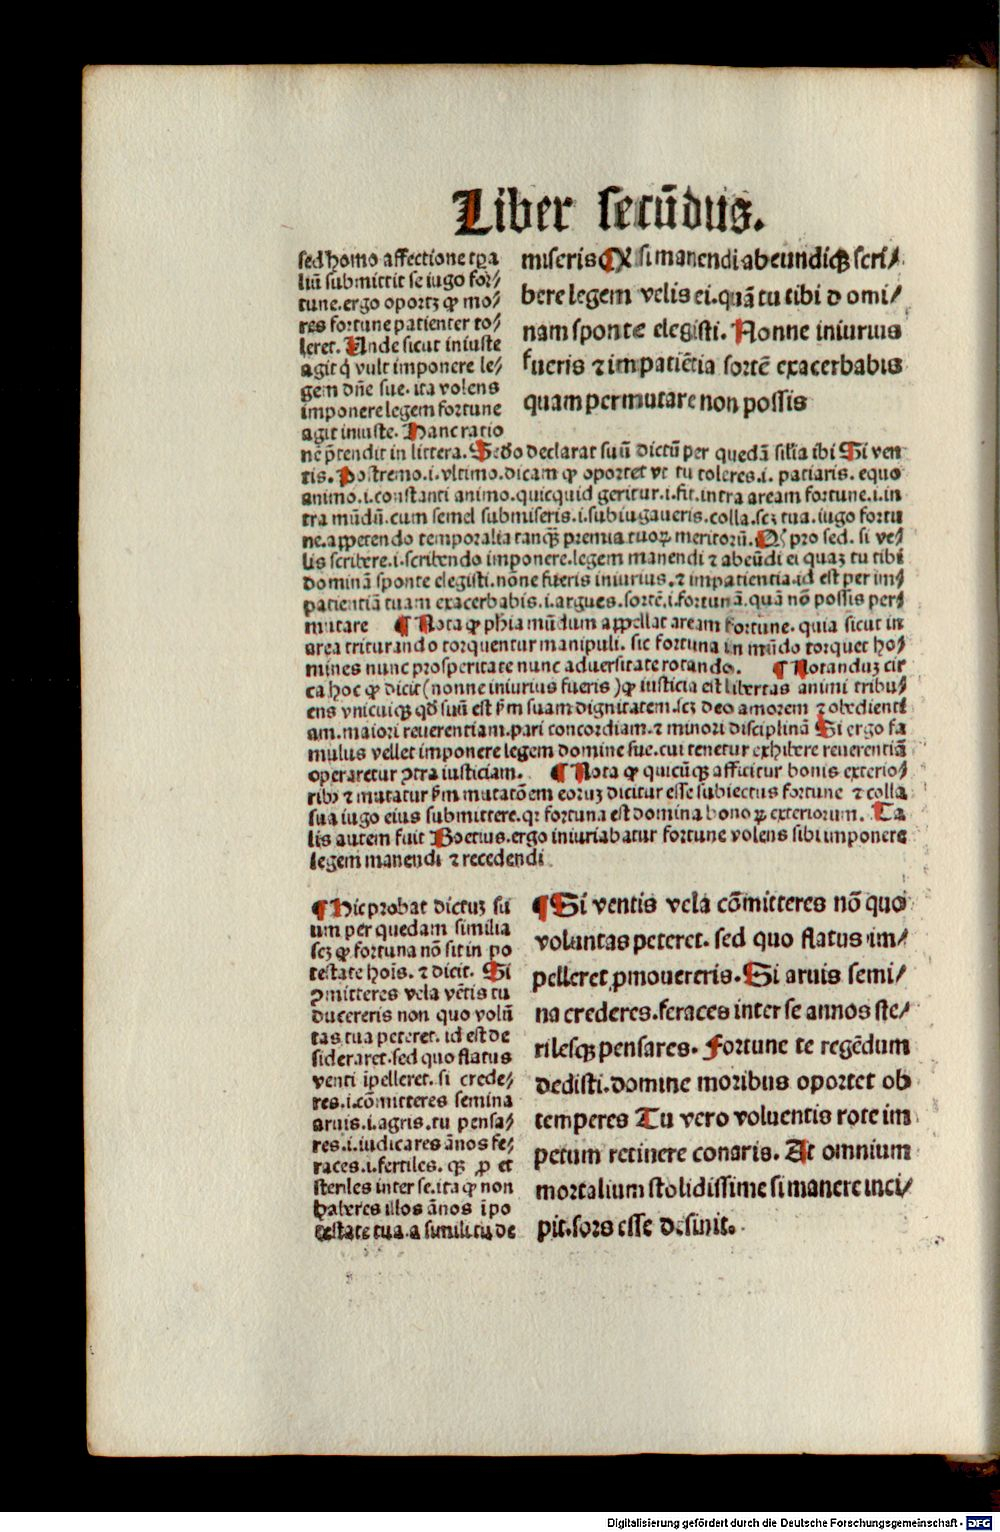 Liber secūdus.
sed homo affectione tꝑa
liū submittit se iugo for/
tune. ergo oportꝫ ꝙ mo/
res fortune patienter to/
leret. Unde sicut iniuste
agit q̇ vult imponere le/
gem dn̄e sue. ita volens
imponere legem fortune
agit iniuste. Hanc ratio
miseris Qꝫ si manendi abeundiqꝫ scri/
bere legem velis ei. quā tu tibi domi/
nam sponte elegisti. Nonne iniurius
fueris ⁊ impatiētia sortē exacerbabis
quam permutare non possis
nē p̄tendit in littera. Secd̄o declarat suū dictū per quedā silīa ibi Si ven
tis. Postremo .i. vltimo. dicam ꝙ oportet vt tu toleres .i. patiaris. equo
animo .i. constanti animo. quicquid geritur .i. fit. intra aream fortune .i. in
tra mūdū. cum semel submiseris .i. subiugaueris. colla. scꝫ tua. iugo fortu
ne. appetendo temporalia tanqꝫ̄ premia tuoꝝ meritorū. Qꝫ pro sed. si ve/
lis scribere .i. scribendo imponere. legem manendi ⁊ abeūdi ei quaꝫ tu tibi
dominā sponte elegisti. nōne fueris iniurius. ⁊ impatientia. id est per im/
patientiā tuam exacerbabis .i. argues. sortē .i. fortunā. quā nō possis per/
mutare ¶ Nota ꝙ phīa mūdum appellat aream fortune. quia sicut in
area triturando torquentur manipuli. sic fortuna in mūdo torquet ho/
mines nunc prosperitate nunc aduersitate rotando. ¶ Notanduꝫ cir
ca hoc ꝙ dicit (nonne iniurius fueris) ꝙ iusticia est libertas animi tribu/
ens vnicuiqꝫ qd̄ suū est s̄m suam dignitatem. scꝫ deo amorem ⁊ obedienti
am. maiori reuerentiam. pari concordiam. ⁊ minori disciplinā Si ergo fa
mulus vellet imponere legem domine sue. cui tenetur exhibere reuerentiā
operaretur ꝯtra iusticiam. ¶ Nota ꝙ quicūqꝫ afficitur bonis exterio/
ribꝫ ⁊ mutatur s̄m mutatōem eoruꝫ dicitur esse subiectus fortune ⁊ colla
sua iugo eius submittere. qꝛ fortuna est domina bonoꝝ exteriorum. Ta
lis autem fuit Boetius. ergo iniuriabatur fortune volens sibi imponere
legem manendi ⁊ recedendi
¶ Hic probat dictuꝫ su
um per quedam similia
scꝫ ꝙ fortuna nō sit in po
testate hoīs. ⁊ dicit. Si
ꝯmitteres vela vētis tu
ducereris non quo volū
tas tua peteret. id est de
sideraret. sed quo flatus
venti īpelleret. si crede/
res .i. cōmitteres semina
aruis .i. agris. tu pensa/
res .i. iudicares ānos fe/
races .i. fertiles. qꝫ ꝓ et
steriles inter se. ita ꝙ non
haberes illos ānos īpo
testate tua. a simili tu de
¶ Si ventis vela cōmitteres nō quo
voluntas peteret. sed quo flatus im/
pelleret ꝓmouereris. Si aruis semi/
na crederes. feraces inter se annos ste/
rilesqꝫ pensares. Fortune te regēdum
dedisti. domine moribus oportet ob
temperes Tu vero voluentis rote im
petum retinere conaris. At omnium
mortalium stolidissime si manere inci/
pit. sors esse desinit.
Digitalisierung gefördert durch die Deutsche Forschungsgemeinschaft - DFG